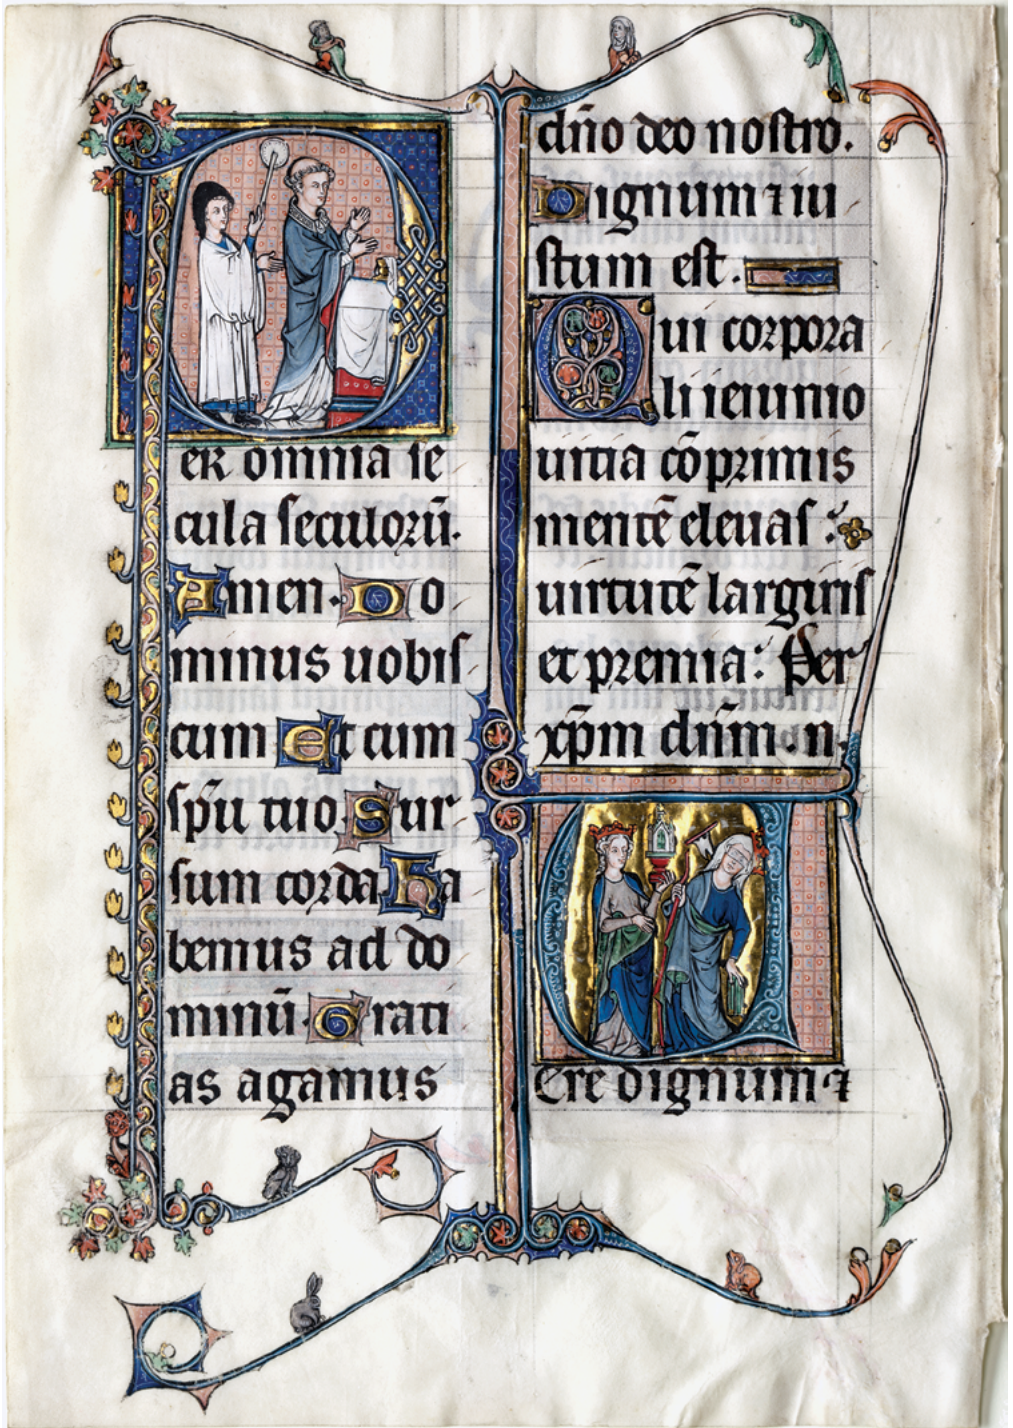 er omnia se
cula seculoꝝū.
Amen. Do
minus uobis
cum Et cum
sp̄u tuo. Sur
sum corda Ha
bemus ad do
minū. Grati
as agamus
dn̄o deo nostro.
Dignum ⁊ iu
stum est.
Qui corpora
li ieiunio
uitia cōprimis
mentē eleuas.
uirtutē largiris
et premia: Per
xp̄m dn̄m. n.
Ere dignum ⁊